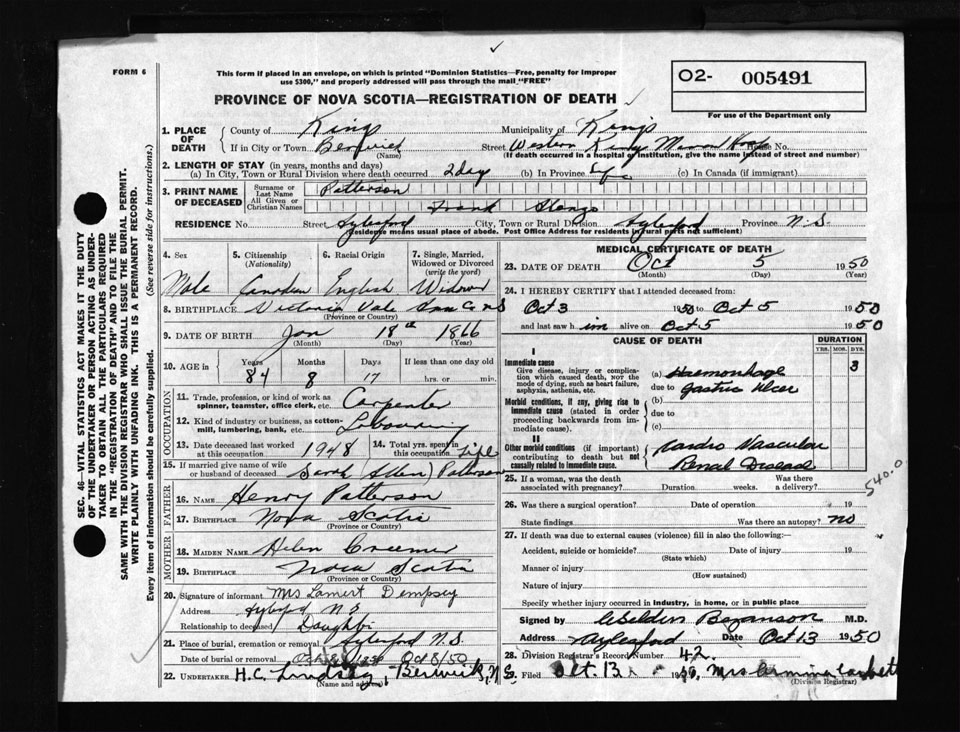 FORM 6
This form if placed in an envelope, on which is printed "Dominion Statistics—Free, penalty for improper
use $300," and properly addressed will pass through the mail "FREE"
O2- 005491
PROVINCE OF NOVA SCOTIA—REGISTRATION OF DEATH
For use of the Department only
1. PLACE OF DEATH
County of Kings Municipality of Kings
If in City or Town Berwick (Name) Street Western Kings House No.
(If death occurred in a hospital or institution, give the name instead of street and number)
2. LENGTH OF STAY (in years, months and days)
(a) In City, Town or Rural Division where death occurred 2 day (b) In Province Life (c) In Canada (if immigrant)
3. PRINT NAME OF DECEASED
Surname or Last Name Patterson
All Given or Christian Names Frank
RESIDENCE No. Street Aylesford City, Town or Rural Division Aylesford Province N.S.
(Residence means usual place of abode. Post Office Address for residents in rural parts not sufficient)
4. Sex
Male
5. Citizenship (Nationality)
Canadian
6. Racial Origin
English
7. Single, Married, Widowed or Divorced (write the word)
Widower
8. BIRTHPLACE Victoria Vale Ann Co NS
(Province or Country)
9. DATE OF BIRTH Jan 18th 1866
(Month) (Day) (Year)
10. AGE in Years Months Days If less than one day old
84 8 17 hrs. or min.
OCCUPATION
11. Trade, profession, or kind of work as spinner, teamster, office clerk, etc. Carpenter
12. Kind of industry or business, as cotton-mill, lumbering, bank, etc.
13. Date deceased last worked at this occupation 1948
14. Total yrs. spent in this occupation Life
15. If married give name of wife or husband of deceased Sarah Patterson
FATHER
16. NAME Henry Patterson
17. BIRTHPLACE Nova Scotia
(Province or Country)
MOTHER
18. MAIDEN NAME Helen
19. BIRTHPLACE Nova Scotia
(Province or Country)
20. Signature of informant Mrs Lamert Dempsey
Address Aylesford N.S
Relationship to deceased Daughter
21. Place of burial, cremation or removal Aylesford N.S.
Date of burial or removal Oct 8/50
22. UNDERTAKER H.C. Lindsay, Berwick, N.S.
(Name and address)
MEDICAL CERTIFICATE OF DEATH
23. DATE OF DEATH Oct 5 1950
(Month) (Day) (Year)
24. I HEREBY CERTIFY that I attended deceased from:
Oct 3 1950 to Oct 5 1950
and last saw h im alive on Oct 5 1950
CAUSE OF DEATH
DURATION
YRS. MOS. DYS.
I
Immediate cause
Give disease, injury or complication which caused death, NOT the mode of dying, such as heart failure, asphyxia, asthenia, etc.
(a) Haemorrhage 3
due to Gastric Ulcer
Morbid conditions, if any, giving rise to immediate cause (stated in order proceeding backwards from immediate cause).
(b)
due to
(c)
II
Other morbid conditions (if important) contributing to death but not causally related to immediate cause.
Cardio Vascular
Renal Disease
540.0
25. If a woman, was the death associated with pregnancy? Duration weeks. Was there a delivery?
26. Was there a surgical operation? Date of operation 19
State findings Was there an autopsy? No
27. If death was due to external causes (violence) fill in also the following:—
Accident, suicide or homicide? Date of injury 19
(State which)
Manner of injury
(How sustained)
Nature of injury
Specify whether injury occurred in industry, in home, or in public place
Signed by Bezanson M.D.
Address Aylesford Date Oct 13 1950
28. Division Registrar's Record Number 42
29. Filed Oct. 13 1950. Mrs
(Division Registrar)
SEC. 46—VITAL STATISTICS ACT MAKES IT THE DUTY
OF THE UNDERTAKER OR PERSON ACTING AS UNDER-
TAKER TO OBTAIN ALL THE PARTICULARS REQUIRED
IN THE "REGISTRATION OF DEATH" AND TO FILE THE
SAME WITH THE DIVISION REGISTRAR WHO SHALL ISSUE THE BURIAL PERMIT.
WRITE PLAINLY WITH UNFADING INK. THIS IS A PERMANENT RECORD.
Every item of information should be carefully supplied. (See reverse side for instructions.)